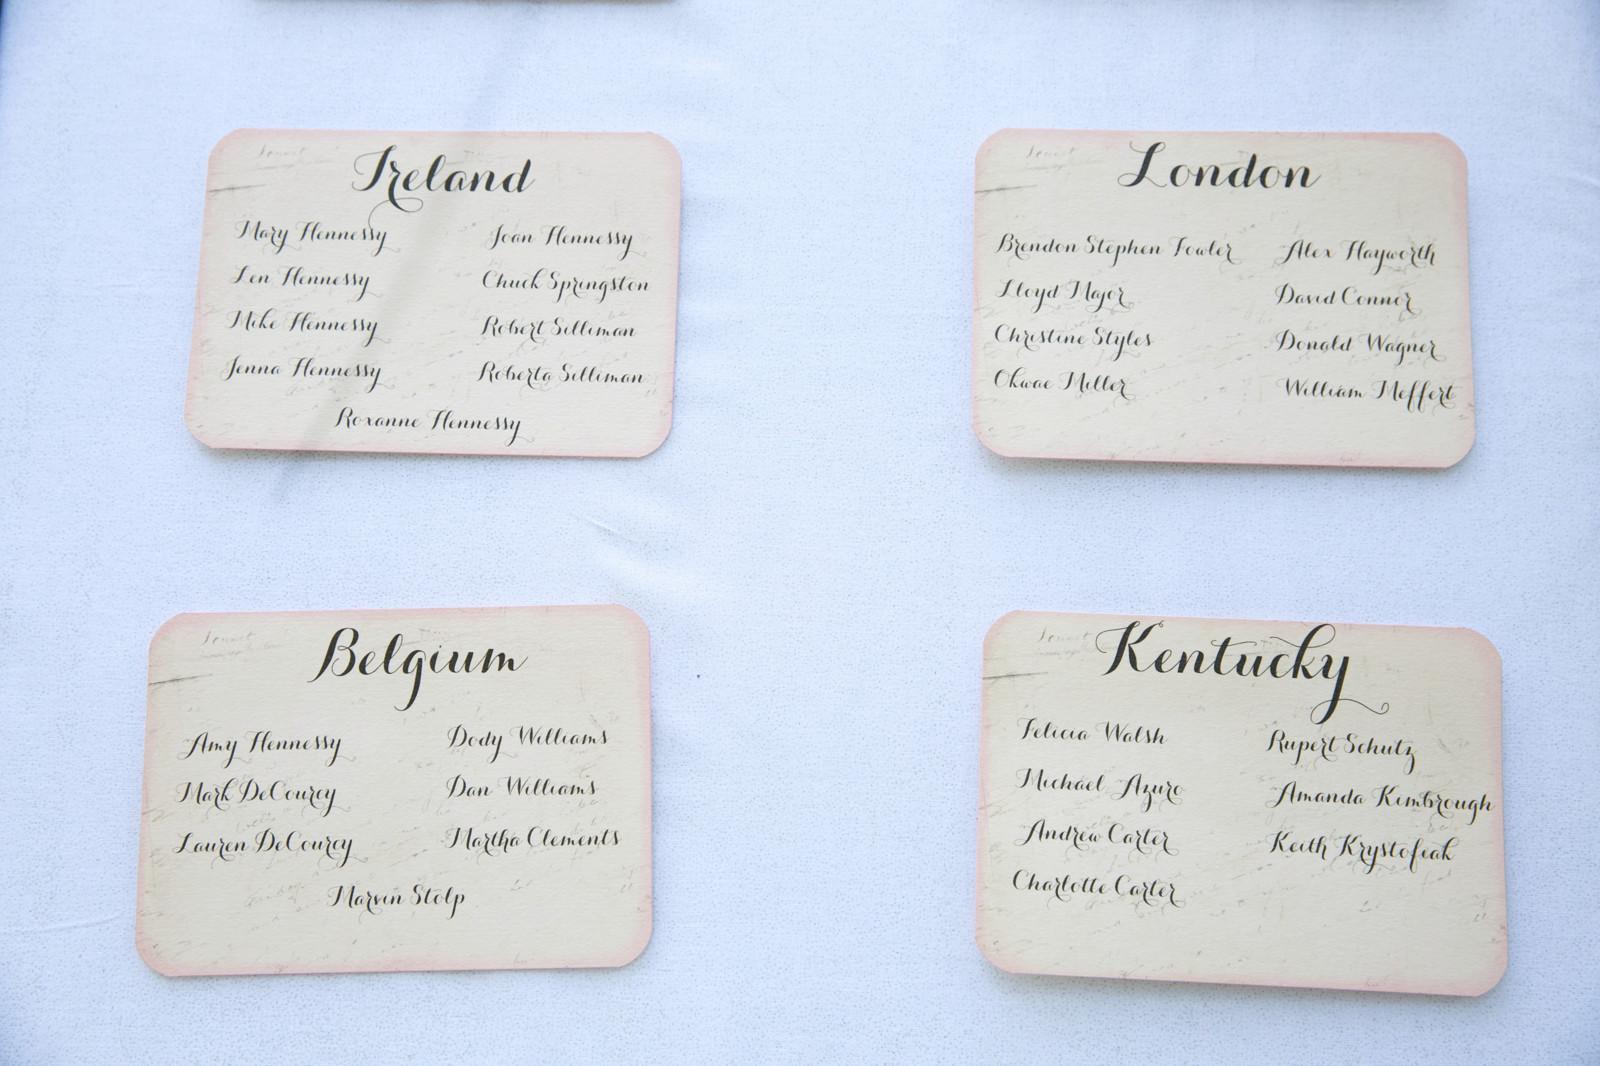 Ireland
Mary Hennessy
Len Hennessy
Mike Hennessy
Jenna Hennessy
Joan Hennessy
Chuck Springston
Robert Silliman
Roberta Silliman
Roxanne Hennessy
London
Brendon Stephen Fowler
Lloyd Major
Christine Styles
Okwae Miller
Alex Hayworth
David Connor
Donald Wagner
William Meffert
Belgium
Amy Hennessy
Mark DeCourcy
Lauren DeCourcy
Dody Williams
Dan Williams
Martha Clements
Marvin Stolp
Kentucky
Felicia Walsh
Michael Azuro
Andrew Carter
Charlotte Carter
Rupert Schutz
Amanda Kimbrough
Keith Krystofeak